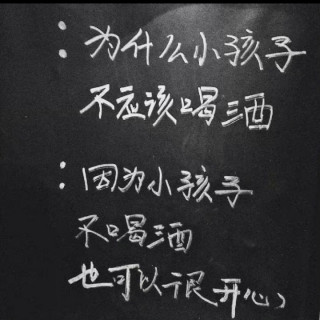 ：为什么小孩子
不应该喝酒
：因为小孩子
不喝酒
也可以很开心）